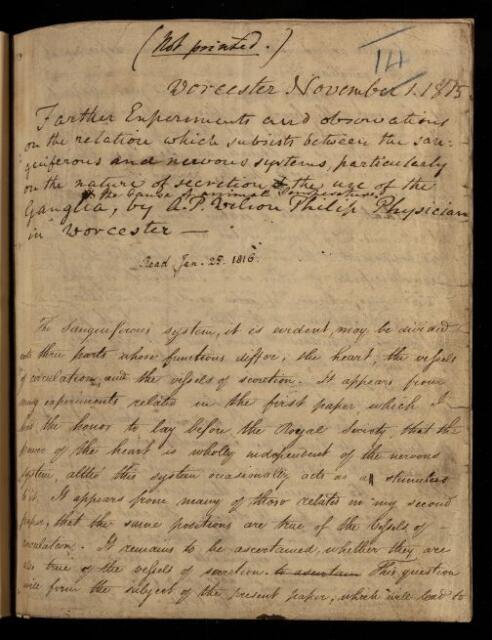 (Not printed.)
14
Worcester November 1. 1815
Farther Experiments and observations
on the relation which subsists between the san-
guiferous and nervous systems, particularly
on the nature of secretion & the use of the
the cause of animal
Ganglia, by A.P. Wilson Philip Physician
in Worcester —
Read Jan. 25. 1816.
The Sanguiferous system, it is evident, may be divided
into three parts whose functions differ, the heart, the vessels
of circulation, and the vessels of secretion. It appears from
many experiments related in the first paper, which I
had the honor to lay before the Royal Society, that the
power of the heart is wholly independent of the nervous
system, altho this system occasionally acts as a stimulus
to it. It appears from many of those related in my second
paper, that the same positions are true of the vessels of
circulation. It remains to be ascertained, whether they are
also true of the vessels of secretion. to ascertain This question
will form the subject of the present paper, which will lead to